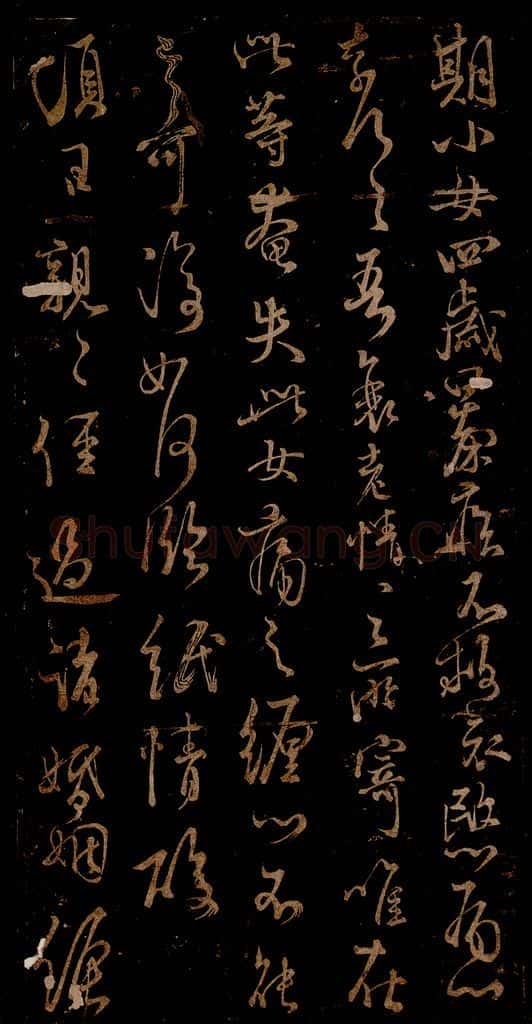 期小女四歲暴疾不救哀愍痛心
奈何〻吾衰老情之所寄唯在
此等奄失此女痛之纏心不能
已〻可復如何臨紙情酸
頃日親〻經過諸婚姻
Shufawang.CN